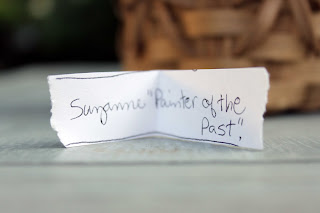 Suzanne "Painter of the
Past".